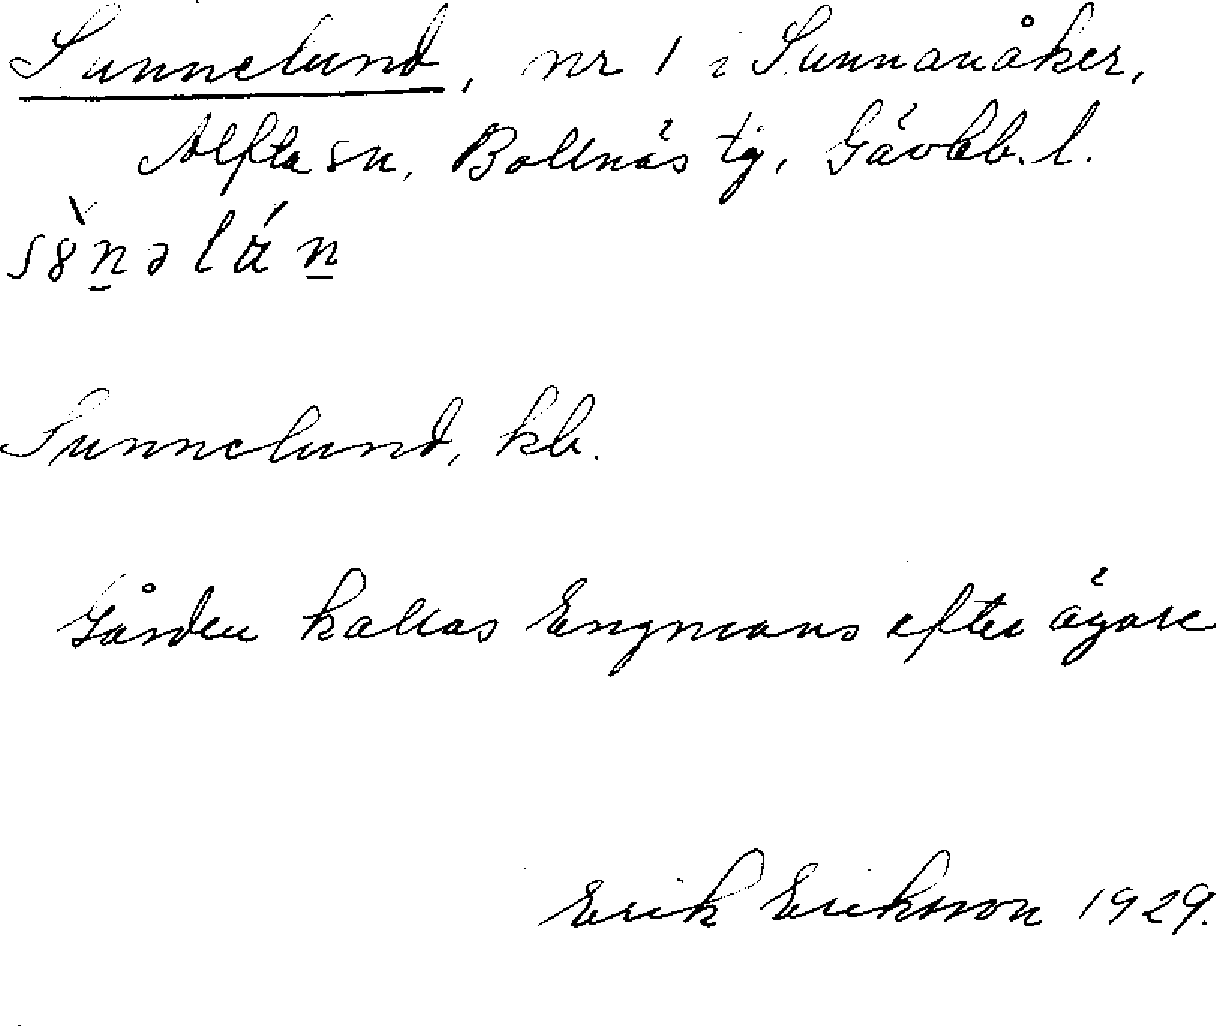 Sunnelund, nr 1 i Sunnanåker,
Alfta sn, Bollnäs tg, Gävleb. l.
Sunnelund, kb.
Gården kallas Engmans efter ägare
Erik Eriksson 1929.